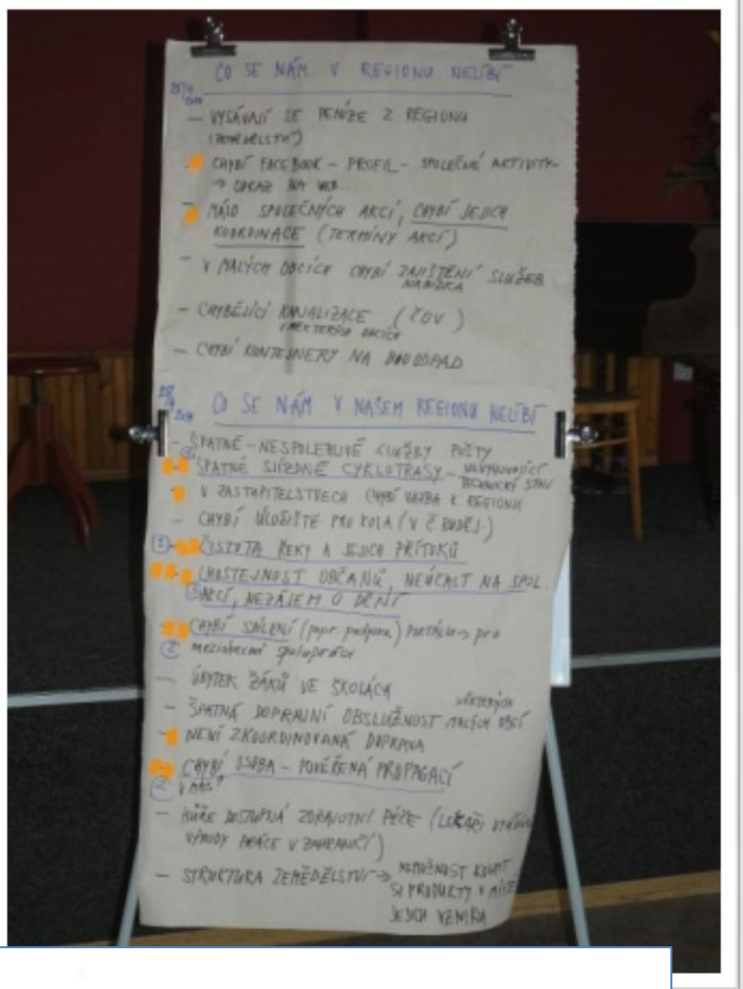 CO SE NÁM V REGIONU NELÍBÍ
– VYSÁVAJÍ SE PENÍZE Z REGIONU
(ZEMĚDĚLSTVÍ)
– CHYBÍ FACEBOOK – PROFIL – SPOLEČNÉ AKTIVITY
→ ODKAZ NA WEB
– MÁLO SPOLEČNÝCH AKCÍ, CHYBÍ JEJICH
KOORDINACE (TERMÍNY AKCÍ)
– V MALÝCH OBCÍCH CHYBÍ ZAJIŠTĚNÍ SLUŽEB
NABÍDKA
– CHYBĚJÍCÍ KANALIZACE (ČOV)
V NĚKTERÝCH OBCÍCH
– CHYBÍ KONTEJNERY NA BIOODPAD
CO SE NÁM V NAŠEM REGIONU NELÍBÍ
– ŠPATNÉ – NESPOLEHLIVÉ SLUŽBY POŠTY
ŠPATNÉ SJÍZDNÉ CYKLOTRASY – NEVYHOVUJÍCÍ
TECHNICKÝ STAV
– V ZASTUPITELSTVECH CHYBÍ VAZBA K REGIONU
– CHYBÍ ÚLOŽIŠTĚ PRO KOLA (V Č. BUDĚJ.)
② – ČISTOTA ŘEKY A JEJICH PŘÍTOKŮ
– LHOSTEJNOST OBČANŮ, NEÚČAST NA SPOL.
AKCÍ, NEZÁJEM O DĚNÍ
– CHYBÍ SDÍLENÍ (popř. podpora) PORTÁLU → pro
② meziobecní spolupráci
– ÚBYTEK ŽÁKŮ VE ŠKOLÁCH
– ŠPATNÁ DOPRAVNÍ OBSLUŽNOST NĚKTERÝCH MALÝCH OBCÍ
– NENÍ ZKOORDINOVANÁ DOPRAVA
– CHYBÍ OSOBA – POVĚŘENÁ PROPAGACÍ
② V MAS?
– HŮŘE DOSTUPNÁ ZDRAVOTNÍ PÉČE (LÉKAŘI
VÝHODY PRÁCE V ZAHRANIČÍ)
– STRUKTURA ZEMĚDĚLSTVÍ → NEMOŽNOST KOUPIT
SI PRODUKTY V MÍSTĚ
JEJICH VZNIKU